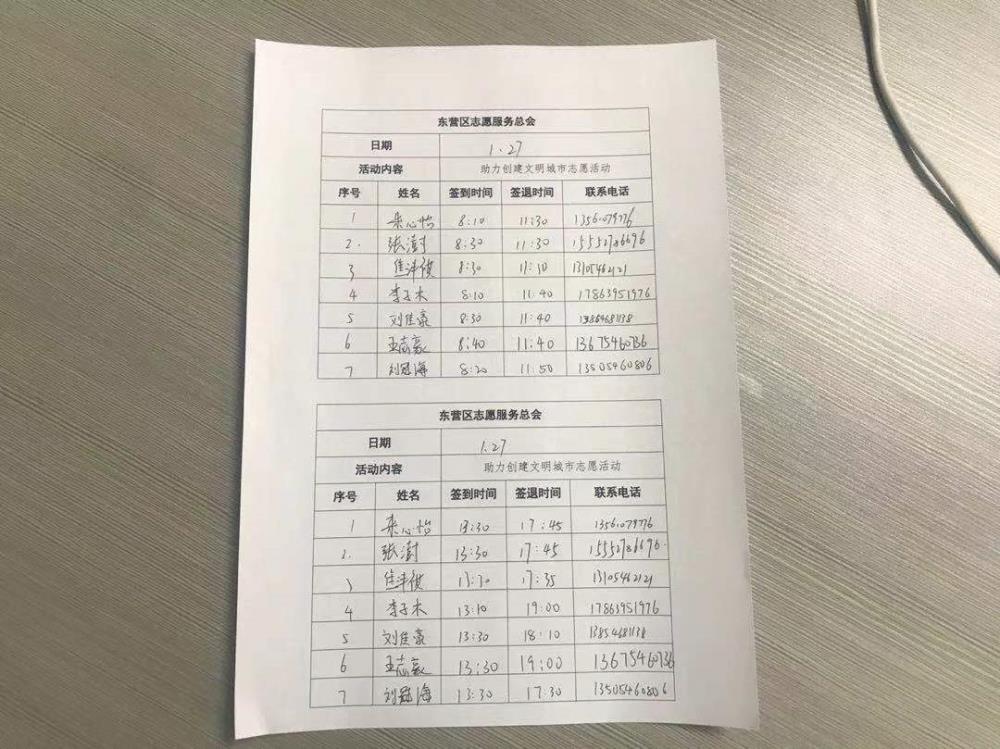 东营区志愿服务总会
日期 1.27
活动内容 助力创建文明城市志愿活动
序号 姓名 签到时间 签退时间 联系电话
1 栾心怡 8:10 11:30 1356079776
2. 张澍 8:30 11:30 15552786696
3 8:30 11:30 13105462121
4 李子木 8:10 11:40 17863951976
5 刘佳豪 8:30 11:40 13854681138
6 王志豪 8:40 11:40 13675460736
7 刘冠海 8:20 11:50 13505460806
东营区志愿服务总会
日期 1.27
活动内容 助力创建文明城市志愿活动
序号 姓名 签到时间 签退时间 联系电话
1 栾心怡 13:30 17:45 1356079776
2. 张澍 13:30 17:45 15552786696.
3 13:30 17:35 13105462121
4 李子木 13:10 19:00 17863951976
5 刘佳豪 13:30 18:10 13854681138
6 王志豪 13:30 19:00 13675460736
7 刘冠海 13:30 17:30 13505460806